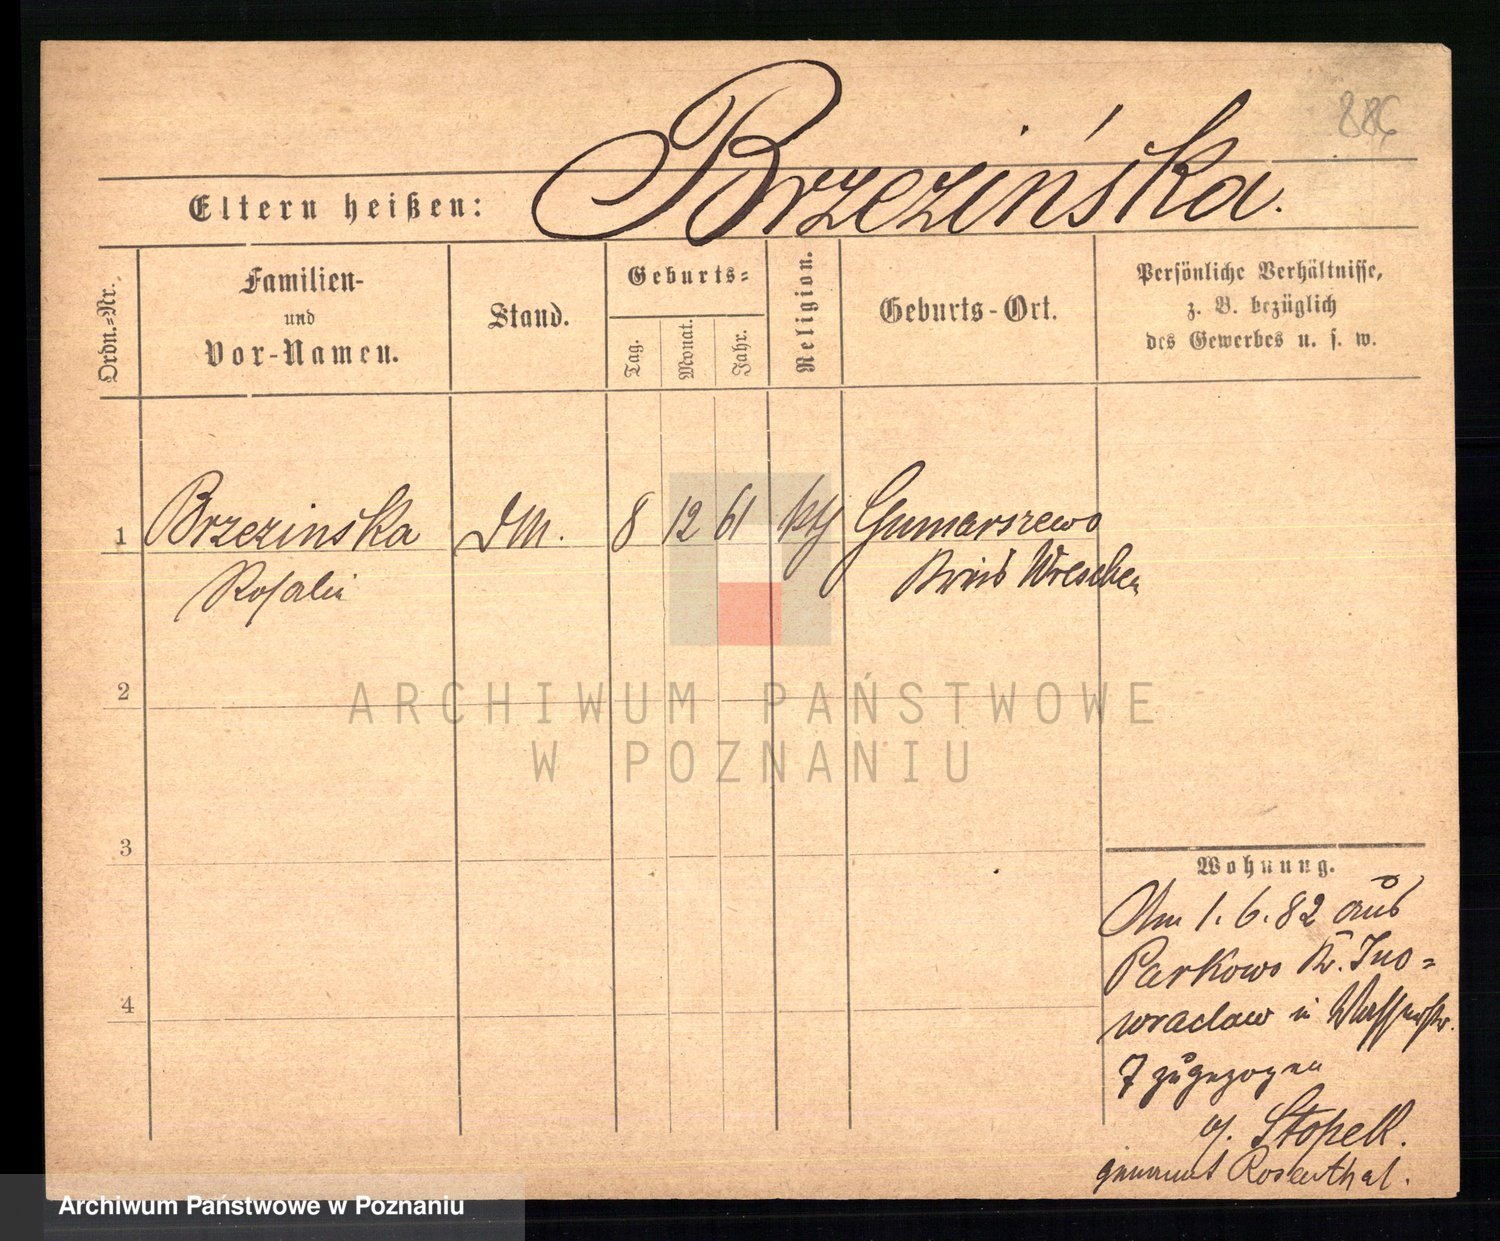 886
Eltern heißen: Brzezińska.
Ordn.-Nr.
Familien-
und
Vor-Namen.
Stand.
Geburts-
Tag.
Monat.
Jahr.
Religion.
Geburts-Ort.
Persönliche Verhältnisse,
z. B. bezüglich
des Gewerbes u. s. w.
1 Brzezinska DM. 8 12 61 kth Gumarszewo
Rosalie Kreis Wreschen
2
ARCHIWUM PAŃSTWOWE
W POZNANIU
3
Wohnung.
Am 1. 6. 82 aus
Parkowo Kr. Ino=
wraclaw in Wasserstr.
4
7 zugezogen
Stopell.
genannt Rosenthal.
Archiwum Państwowe w Poznaniu